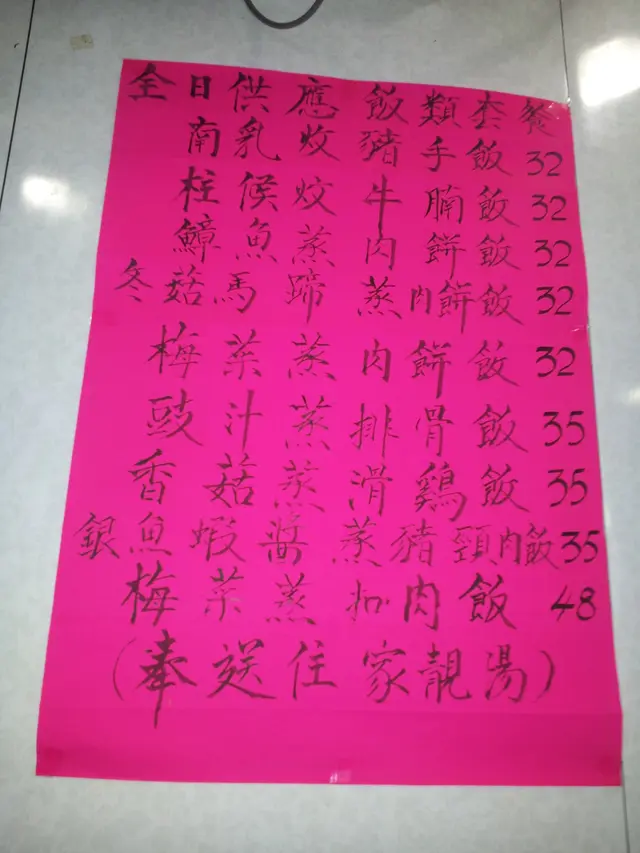 全日供應飯類套餐
南乳炆豬手飯 32
柱候炆牛腩飯 32
鱆魚蒸肉餅飯 32
冬菇馬蹄蒸肉餅飯 32
梅菜蒸肉餅飯 32
豉汁蒸排骨飯 35
香菇蒸滑鷄飯 35
銀魚蝦醬蒸豬頸肉飯 35
梅菜蒸扣肉飯 48
(奉送住家靚湯)